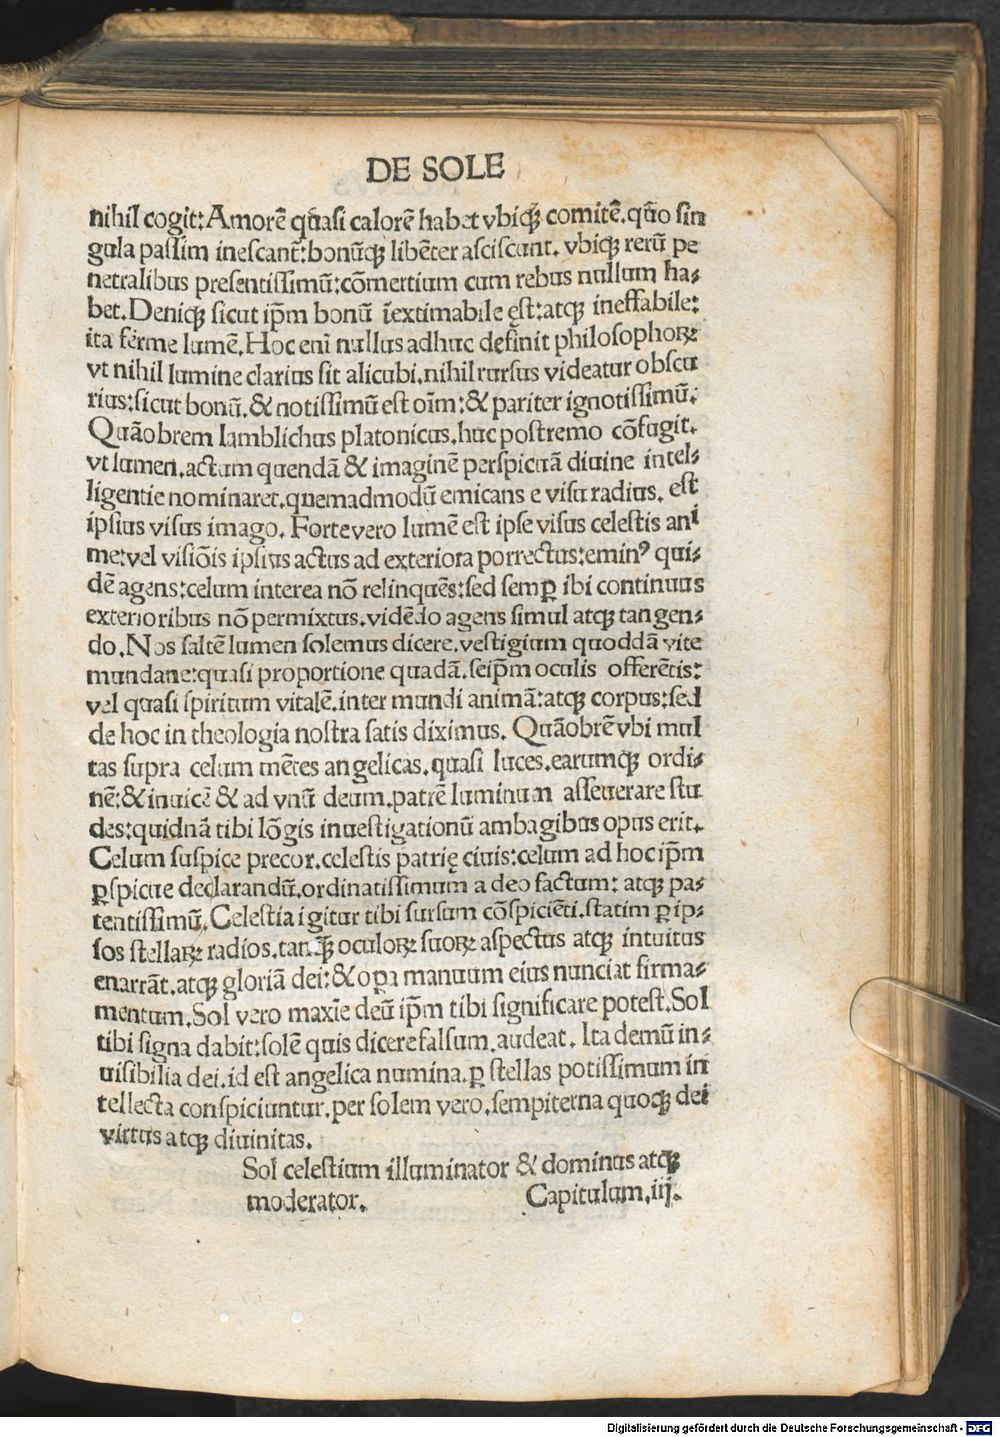 DE SOLE
nihil cogit:Amorẽ quasi calorẽ habet vbiqꝫ comitẽ.quo sin
gula passim inescant᷑:bonũqꝫ libẽter asciscunt. vbiqꝫ rerũ pe
netralibus presentissimũ:cõmertium cum rebus nullum ha⸗
bet.Deniqꝫ sicut ip̃m bonũ ĩextimabile ęst:atqꝫ ineffabile:
ita ferme lumẽ.Hoc enĩ nullus adhuc definit philosophoꝝ
vt nihil lumine clarius sit alicubi.nihil rursus videatur obscu
rius:sicut bonũ.& notissimũ est oĩm:& pariter ignotissimũ.
Quãobrem Iamblichus platonicus.huc postremo cõfugit.
vt lumen.actum quendã & imaginẽ perspicuã diuine intel⸗
ligentie nominaret.quemadmodũ emicans e visu radius. est
ipsius visus imago. Forte vero lumẽ est ipse visus celestis ani
me:vel visiõis ipsius actus ad exteriora porrectus:eminꝰ qui⸗
dẽ agens:celum interea nõ relinquẽs:sed semꝑ ibi continuus
exterioribus nõ permixtus.vidẽdo agens simul atqꝫ tangen⸗
do.Nos saltẽ lumen solemus dicere.vestigium quoddã vite
mundane:quasi proportione quadã.seip̃m oculis offerẽtis:
vel quasi spiritum vitalẽ.inter mundi animã:atqꝫ corpus:sed
de hoc in theologia nostra satis diximus. Quãobrẽ vbi mul
tas supra celum mẽtes angelicas.quasi luces.earumqꝫ ordi⸗
nẽ:& inuicẽ & ad vnũ deum.patrẽ luminum asseuerare stu
des:quidnã tibi lõgis inuestigationũ ambagibus opus erit.
Celum suspice precor.celestis patrię ciuis:celum ad hoc ip̃m
ꝑspicue declarandũ.ordinatissimum a deo factum: atqꝫ pa⸗
tentissimũ.Celestia igitur tibi sursum cõspiciẽti.statim ꝑ ip⸗
sos stellaꝝ radios.tanqꝫ̃ oculoꝝ suoꝝ aspectus atqꝫ intuitus
enarrãt.atqꝫ gloriã dei:& oꝑa manuum eius nunciat firma⸗
mentum.Sol vero maxĩe deũ ip̃m tibi significare potest.Sol
tibi signa dabit:solẽ quis dicere falsum.audeat. Ita demũ in⸗
uisibilia dei.id est angelica numina.ꝑ stellas potissimum in
tellecta conspiciuntur.per solem vero.sempiterna quoqꝫ dei
virtus atqꝫ diuinitas.
Sol celestium illuminator & dominus atqꝫ
moderator. Capitulum.iij.
Digitalisierung gefördert durch die Deutsche Forschungsgemeinschaft - DFG